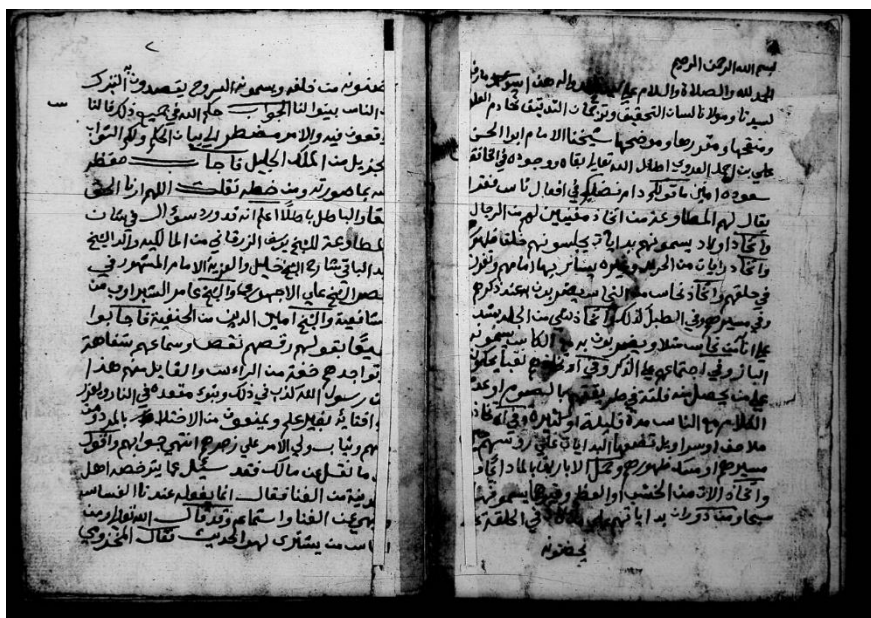 بسم الله الرحمن الرحيم
الحمد لله والصلاة والسلام على هذا
لسيدنا ومولانا لسان التحقيق وترجمان التدقيق خادم العلم
ومنقحها ومقررها وموضحها شيخنا الامام ابو الحسن
علي بن احمد العدوي اطال الله تعالى بقاه ووجوده في
سعوده امين ما قولكم دام فضلكم في افعال ناس فقرا
يقال لهم المطاوعة من اتخاذ مغنيين لهم من الرجال
واتخاذ اولاد يسمونهم بدايات يجلسونهم خلف ظهورهم
واتخاذ رايات من الحرير وغيره يسار بها امامهم وتكون
في حلقهم واتخاذ نحاس يضربونه عند ذكرهم
وفي مسيرهم وفي الطبل كذلك واتخاذ شي من الجلد يشد
على اناء نحاس مثلا ويضربون به مع الكاس يسمونه
الباز وفي اجتماعهم على الذكر وفي
على من يحصل منه فلتة في طريقهم بالصوم او عدم
الكلام مع الناس مدة قليلة او كثيرة وفي
ملاحف او سراويل تضعها البدايات على رؤسهم
مسيرهم او عند ظهورهم وحمل الاباريق بالماء
واتخاذ الات من الخشب او العظم وغيرها يسمونها
سبحا ومن دوران بداياتهم على في الحلقة
يحضنونه
٢
يحضنونه من خلفه ويسمونه السروح يقصدون به التبرك
الناس بينوا لنا الجواب حكم الله في جميع ذلك فاننا
واقعون فيه والامر مضطر الى بيان الحكم ولكم الثواب
الجزيل من الملك الجليل فاجاب حفظه
الله بما صورته ومن خطه نقلت اللهم ارنا الحق
حقا والباطل باطلا اعلم انه قد ورد سؤال في شان
المطاوعة للشيخ يوسف الزرقاني من المالكية والد الشيخ
عبد الباقي شارح الشيخ خليل والعزية الامام المشهور في
عصر الشيخ علي الاجهوري والشيخ عامر الشبراوي من
الشافعية والشيخ امين الدين من الحنفية فاجابوا
جميعا بقولهم رقصهم نقص وسماعهم سفاهة
وتواجدهم خفة من الراس والقايل منهم هذا
رسول الله كذب في ذلك ويتبوء مقعده في النار ويعزر
ويمنعون من الاختلاط بالمرد
ويثاب ولي الامر على زجرهم انتهى جوابهم واقول
ما نقل عن مالك فقد سيل عما يترخصه اهل
المدينة من الغنا فقال انما يفعله عندنا الفساق
ونهى عن الغنا واستماعه وقد قال الله تعالى ومن
الناس من يشتري لهو الحديث فقال المخزومي